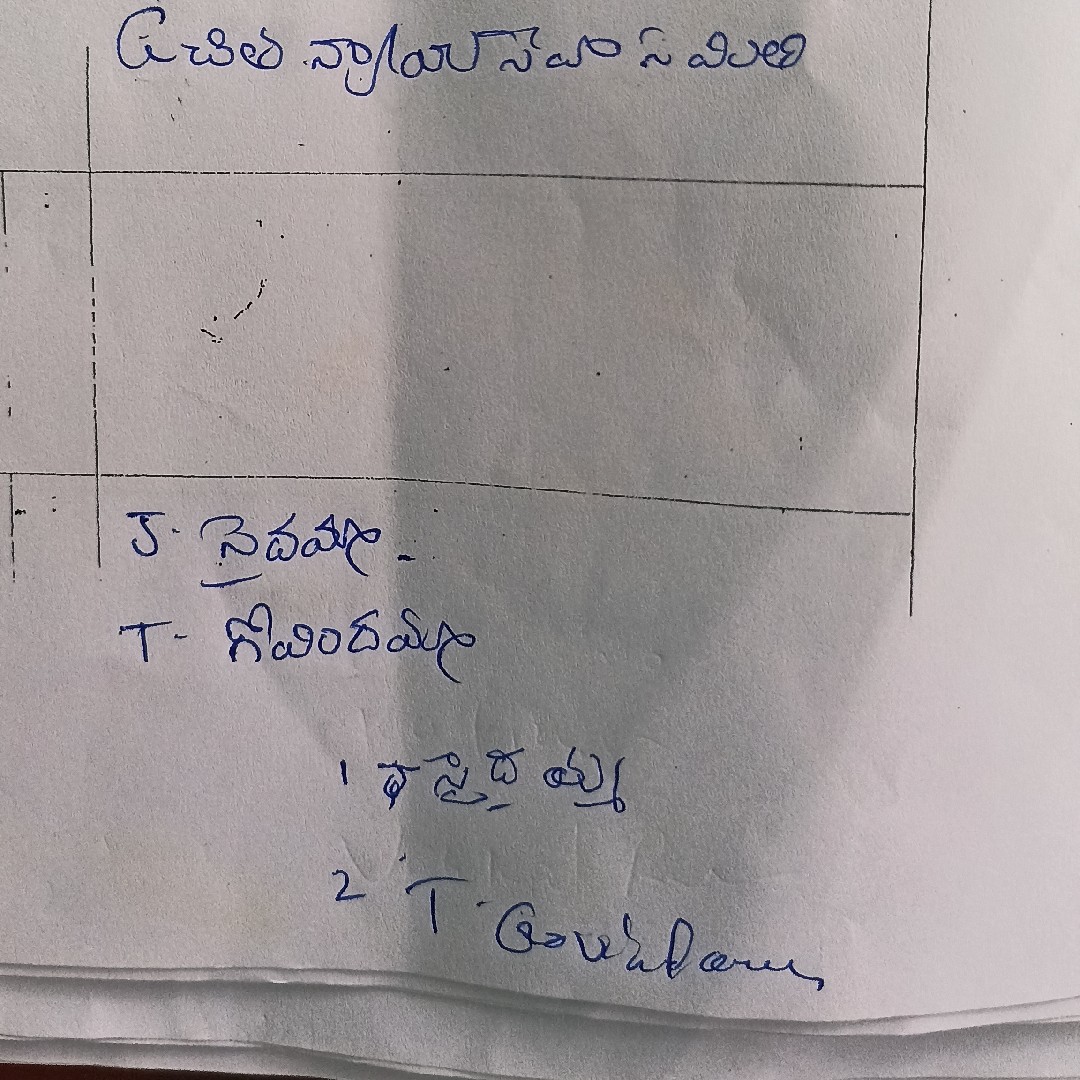 ఉచిత న్యాయ సేవా సమితి
J. సైదమ్మ
T. గోవిందమ్మ
1
2 T. Govindamma